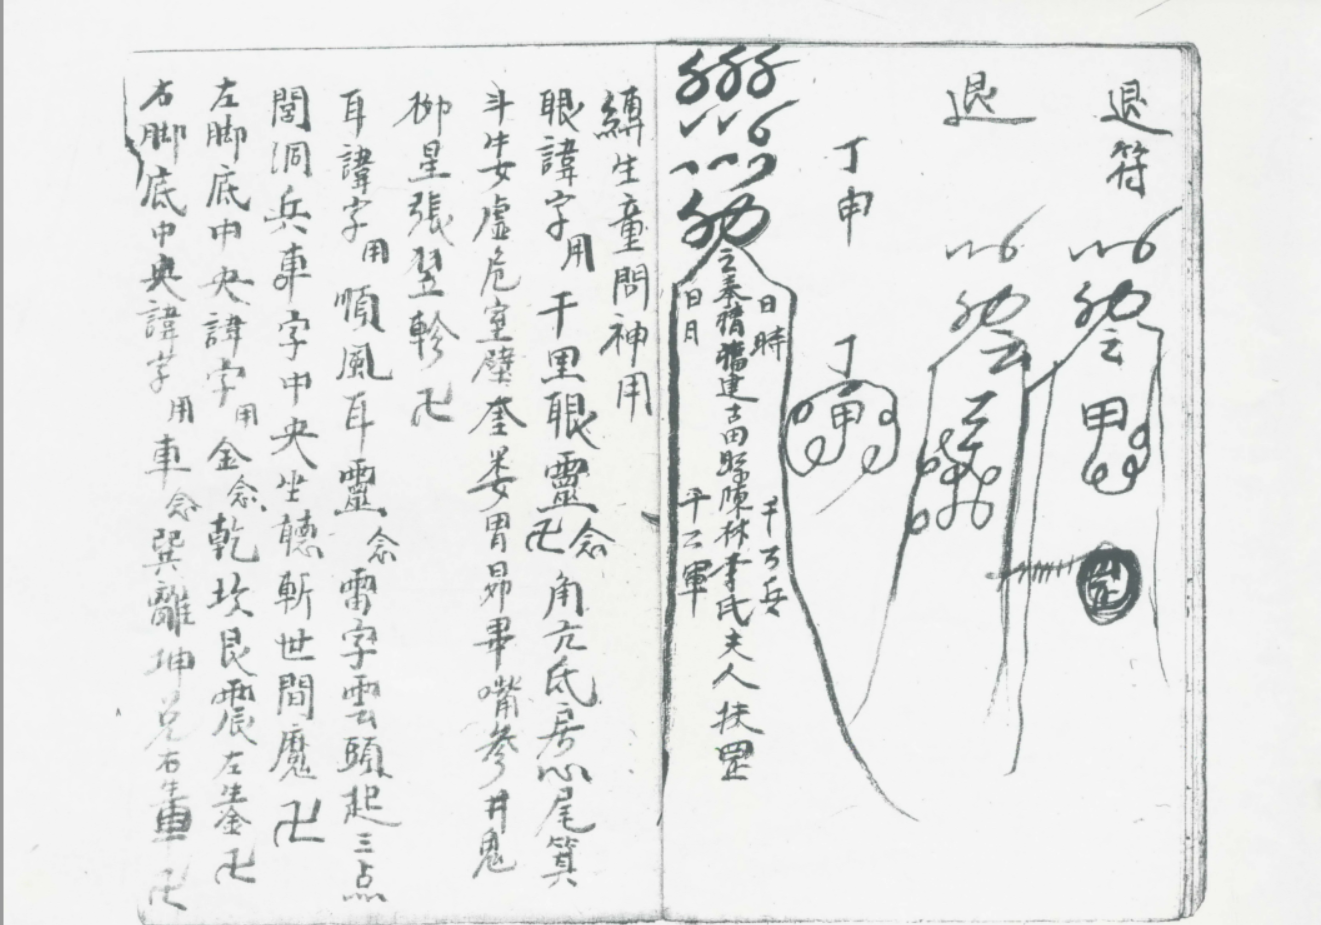 退符
勅令甲
罡
退
勅令
丁申
丁
申
勅令奉請福建古田縣陳林李氏夫人扶罡
日時
日月
千万兵
千万軍
縛生童問神用
眼諱字用千里眼靈卍念角亢氐房心尾箕
斗牛女虛危室壁奎婁胃昴畢嘴參井鬼
柳星張翌軫卍
耳諱字用順風耳靈念雷字雲頭起三点
閭洞兵車字中央坐聽斬世間魔卍
左脚底中央諱字用金念乾坎艮震左
卍
右脚底中央諱字用車念巽離坤兌右
卍